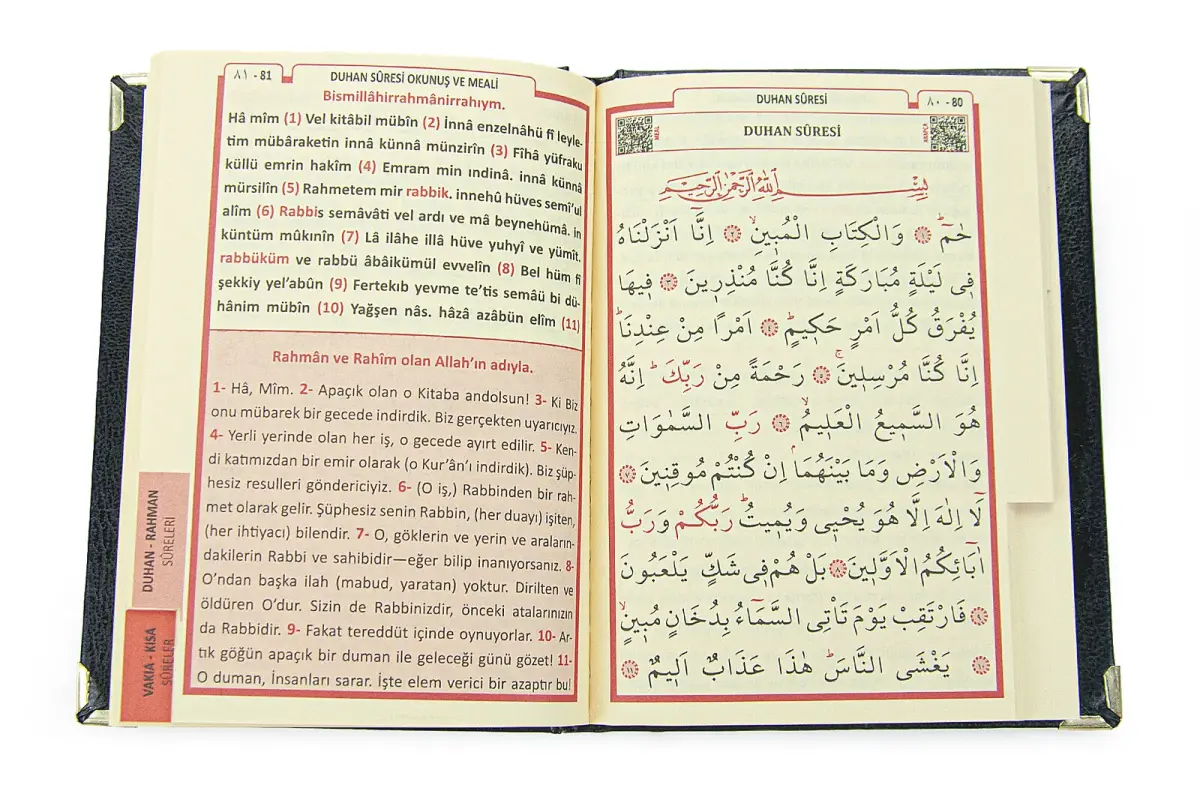 ٨١ - 81
DUHAN SÛRESİ OKUNUŞ VE MEALİ
Bismillâhirrahmânirrahıym.
Hâ mîm (1) Vel kitâbil mübîn (2) İnnâ enzelnâhü fî leyle-
tim mübâraketin innâ künnâ münzirîn (3) Fîhâ yüfraku
küllü emrin hakîm (4) Emram min ındinâ. innâ künnâ
mürsilîn (5) Rahmetem mir rabbik. innehû hüves semî'ul
alîm (6) Rabbis semâvâti vel ardı ve mâ beynehümâ. in
küntüm mûkınîn (7) Lâ ilâhe illâ hüve yuhyî ve yümît.
rabbüküm ve rabbü âbâikümül evvelîn (8) Bel hüm fî
şekkiy yel'abûn (9) Fertekıb yevme te'tis semâü bi dü-
hânim mübîn (10) Yağşen nâs. hâzâ azâbün elîm (11)
Rahmân ve Rahîm olan Allah'ın adıyla.
1- Hâ, Mîm. 2- Apaçık olan o Kitaba andolsun! 3- Ki Biz
onu mübarek bir gecede indirdik. Biz gerçekten uyarıcıyız.
4- Yerli yerinde olan her iş, o gecede ayırt edilir. 5- Ken-
di katımızdan bir emir olarak (o Kur'ân'ı indirdik). Biz şüp-
hesiz resulleri göndericiyiz. 6- (O iş,) Rabbinden bir rah-
met olarak gelir. Şüphesiz senin Rabbin, (her duayı) işiten,
(her ihtiyacı) bilendir. 7- O, göklerin ve yerin ve araların-
dakilerin Rabbi ve sahibidir—eğer bilip inanıyorsanız. 8-
O'ndan başka ilah (mabud, yaratan) yoktur. Dirilten ve
öldüren O'dur. Sizin de Rabbinizdir, önceki atalarınızın
da Rabbidir. 9- Fakat tereddüt içinde oynuyorlar. 10- Ar-
tık göğün apaçık bir duman ile geleceği günü gözet! 11-
O duman, İnsanları sarar. İşte elem verici bir azaptır bu!
DUHAN - RAHMAN
SÛRELERİ
VAKIA - KISA
SÛRELER
DUHAN SÛRESİ
٨٠ - 80
MEAL
DUHAN SÛRESİ
بِسْمِ اللّٰهِ الرَّحْمٰنِ الرَّحِيمِ
حٰمٓ ﴿١﴾ وَالْكِتَابِ الْمُبٖينِ ﴿٢﴾ اِنَّٓا اَنْزَلْنَاهُ
فٖي لَيْلَةٍ مُبَارَكَةٍ اِنَّا كُنَّا مُنْذِرٖينَ ﴿٣﴾ فٖيهَا
يُفْرَقُ كُلُّ اَمْرٍ حَكٖيمٍ ﴿٤﴾ اَمْرًا مِنْ عِنْدِنَا
اِنَّا كُنَّا مُرْسِلٖينَ ﴿٥﴾ رَحْمَةً مِنْ رَبِّكَ اِنَّهُ
هُوَ السَّمٖيعُ الْعَلٖيمُ ﴿٦﴾ رَبِّ السَّمٰوَاتِ
وَالْاَرْضِ وَمَا بَيْنَهُمَا اِنْ كُنْتُمْ مُوقِنٖينَ ﴿٧﴾
لَٓا اِلٰهَ اِلَّا هُوَ يُحْيٖي وَيُمٖيتُ رَبُّكُمْ وَرَبُّ
اٰبَٓائِكُمُ الْاَوَّلٖينَ ﴿٨﴾ بَلْ هُمْ فٖي شَكٍّ يَلْعَبُونَ
﴿٩﴾ فَارْتَقِبْ يَوْمَ تَأْتِي السَّمَٓاءُ بِدُخَانٍ مُبٖينٍ
﴿١٠﴾ يَغْشَى النَّاسَ هٰذَا عَذَابٌ اَلٖيمٌ ﴿١١﴾